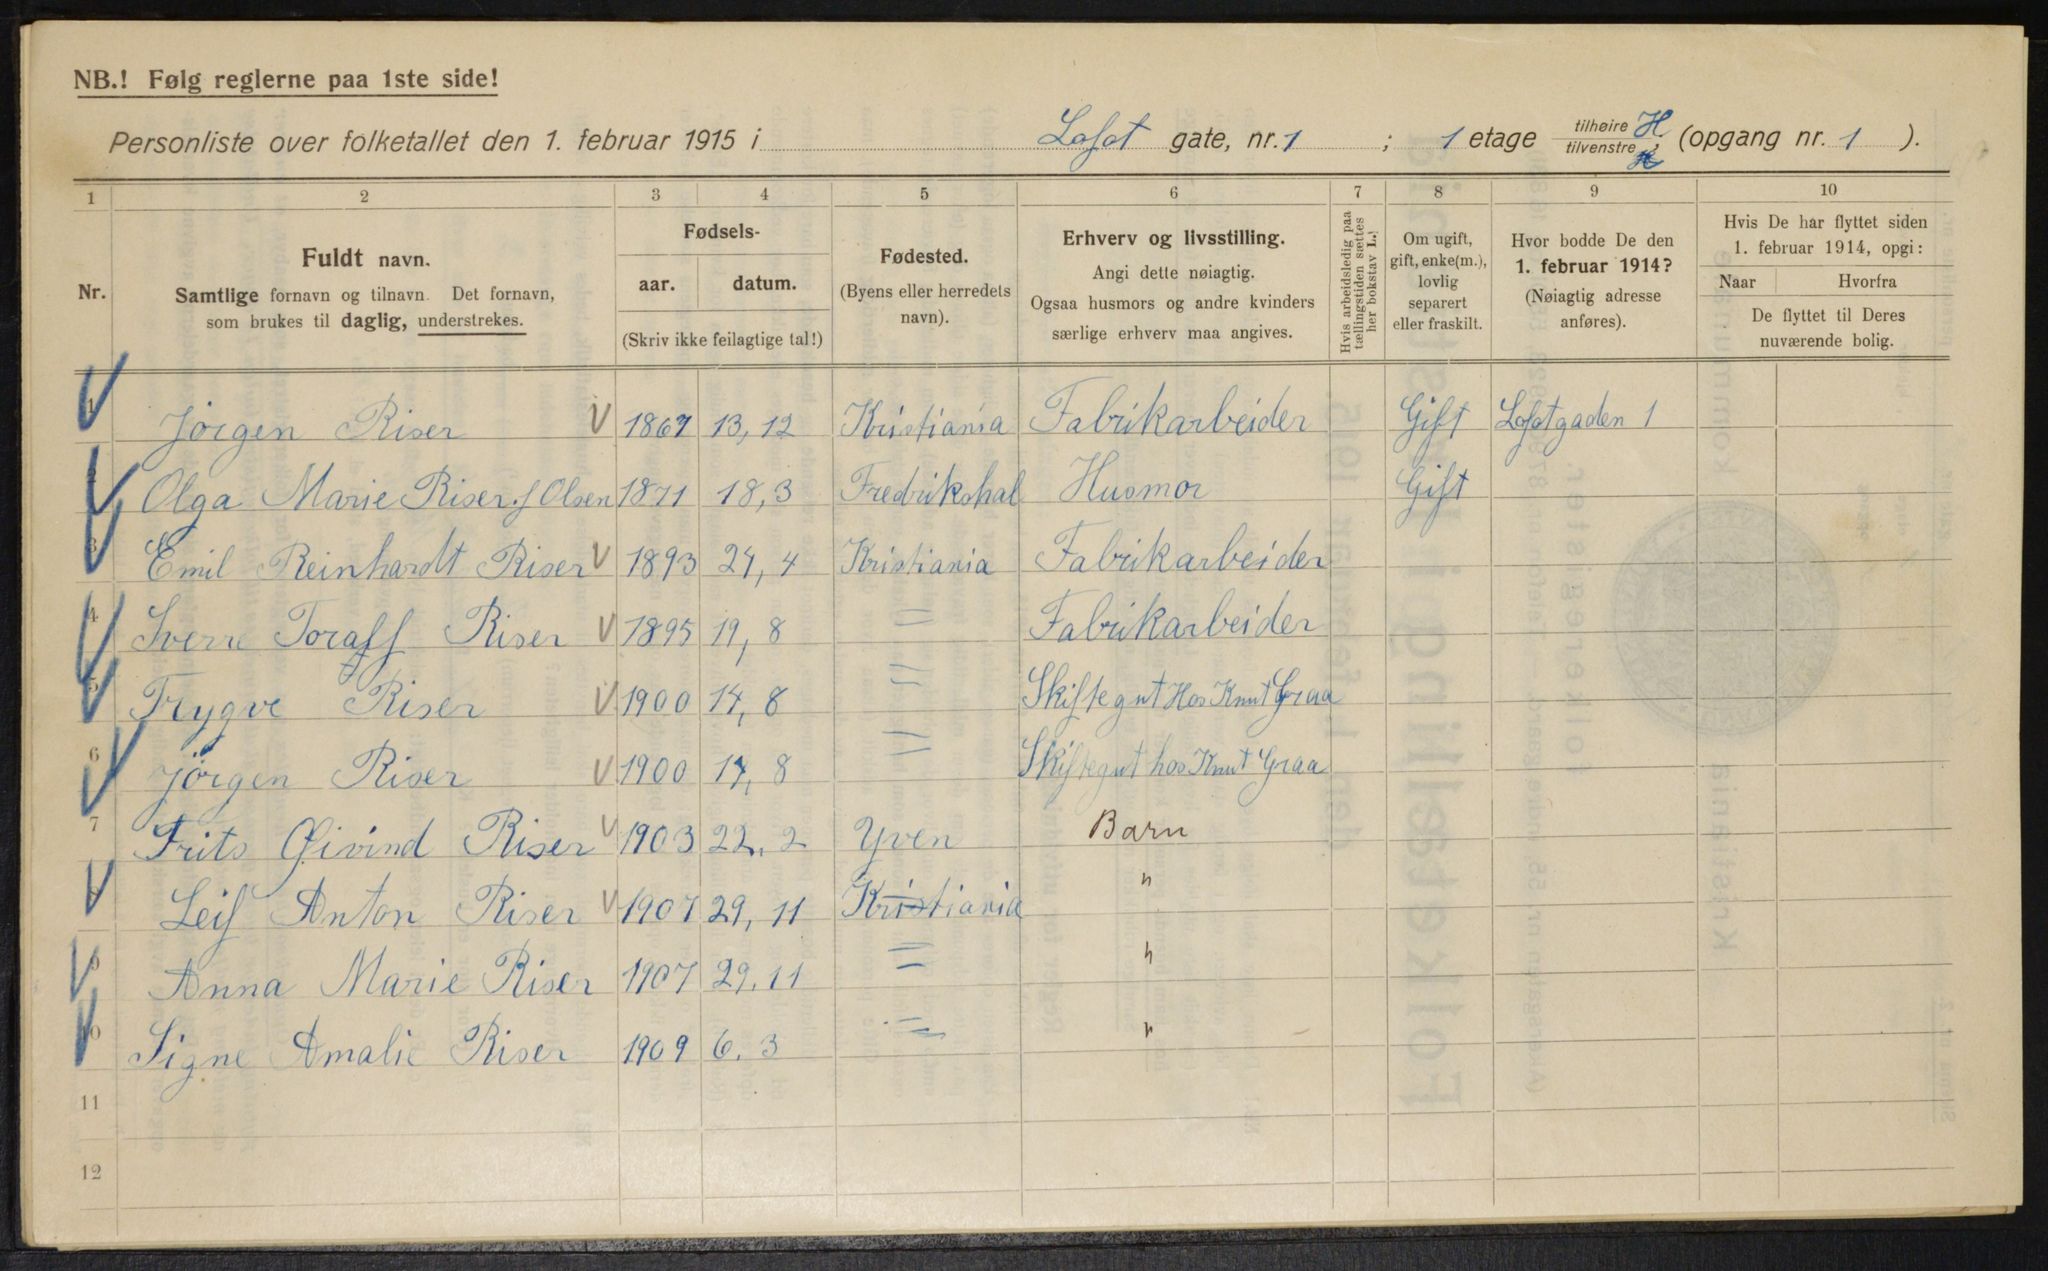 NB.! Følg reglerne paa 1ste side!
Personliste over folketallet den 1. februar 1915 i Lofot gate, nr. 1 ; 1 etage tilhøire H / tilvenstre, (opgang nr. 1 ).
1 2 3 4 5 6 7 8 9 10
Nr.
Fuldt navn.
Samtlige fornavn og tilnavn. Det fornavn,
som brukes til daglig, understrekes.
Fødsels-
aar. datum.
(Skriv ikke feilagtige tal!)
Fødested.
(Byens eller herredets
navn).
Erhverv og livsstilling.
Angi dette nøiagtig.
Ogsaa husmors og andre kvinders
særlige erhverv maa angives.
Hvis arbeidsledig paa
tællingstiden sættes
her bokstav L.!
Om ugift,
gift, enke(m.),
lovlig
separert
eller fraskilt.
Hvor bodde De den
1. februar 1914?
(Nøiagtig adresse
anføres).
Hvis De har flyttet siden
1. februar 1914, opgi:
Naar Hvorfra
De flyttet til Deres
nuværende bolig.
1 Jørgen Riser 1867 13, 12 Kristiania Fabrikarbeider Gift Lofotgaden 1
2 Olga Marie Riser f Olsen 1871 18, 3 Fredrikshal Husmor Gift
3 Emil Reinhardt Riser 1893 24, 4 Kristiania Fabrikarbeider
4 Sverre Toraff Riser 1895 19, 8 " Fabrikarbeider
5 Trygve Riser 1900 14, 8 " Skiftegut Hos Knut Graa
6 Jørgen Riser 1900 14, 8 " Skiftegut hos Knut Graa
7 Frits Øivind Riser 1903 22. 2 Yven Barn
8 Leif Anton Riser 1907 29, 11 Kristiania "
9 Anna Marie Riser 1907 29. 11 " "
10 Signe Amalie Riser 1909 6. 3 " "
11
12